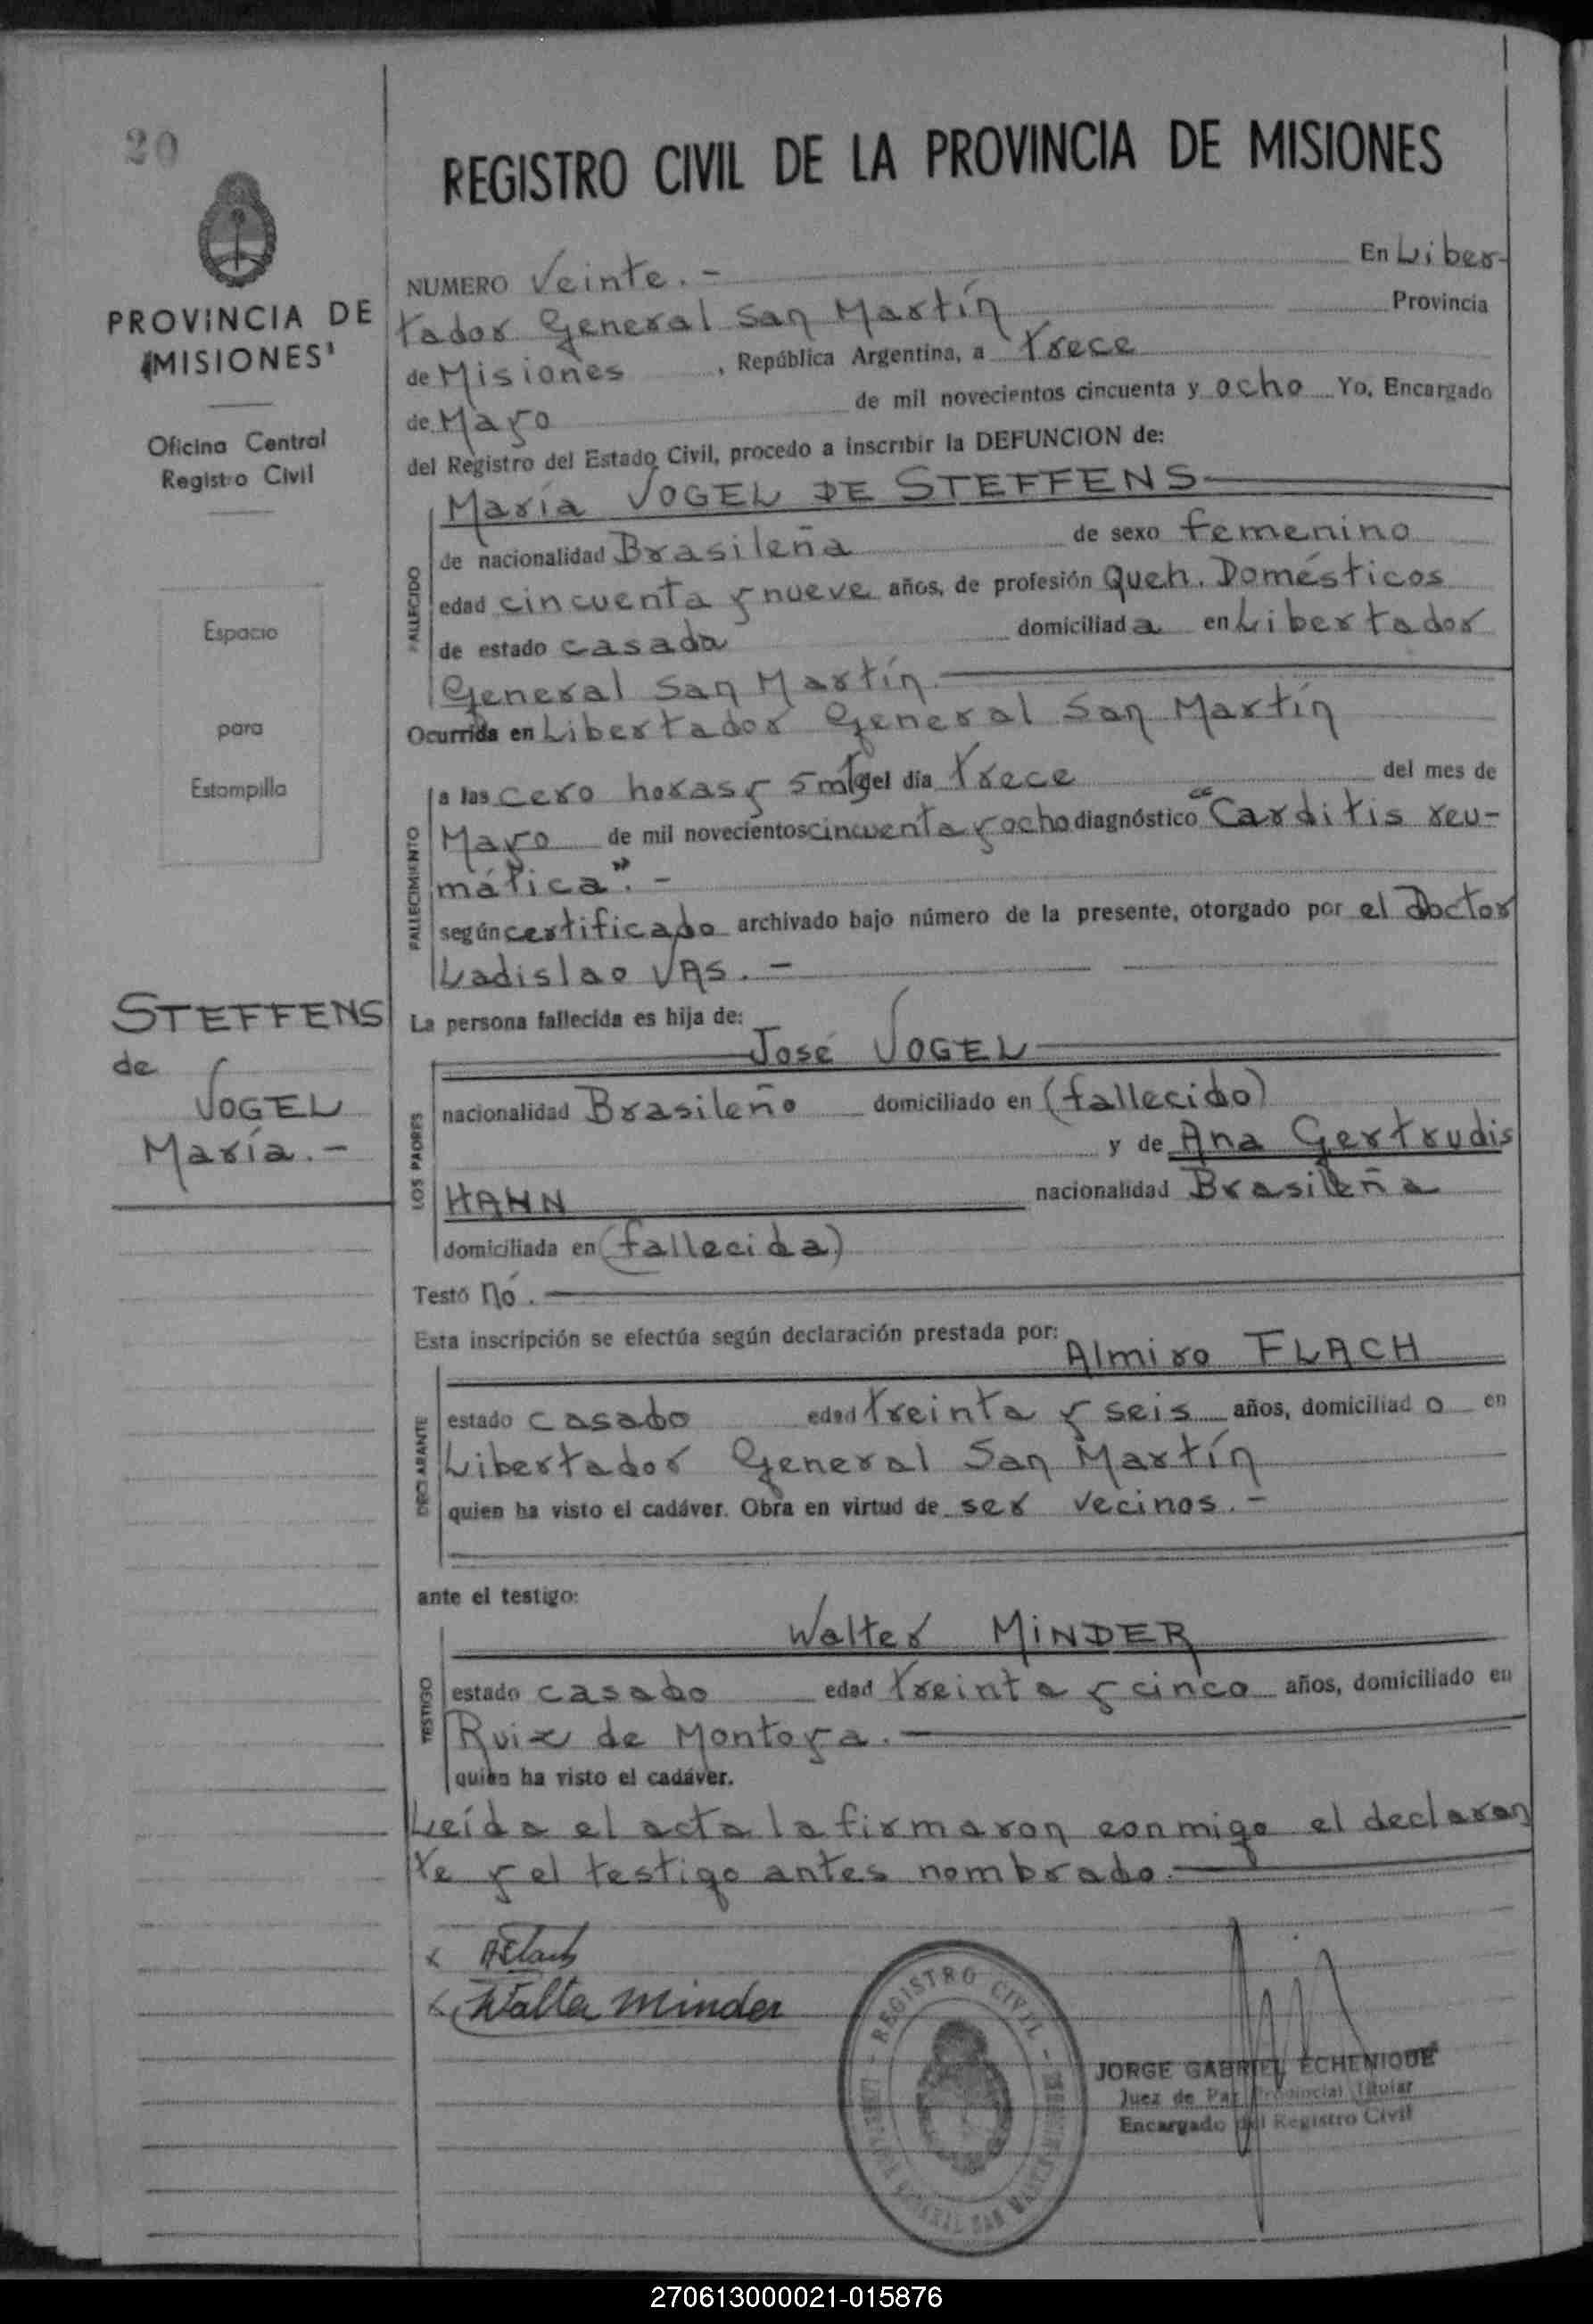 20
PROVINCIA DE
MISIONES
Oficina Central
Registro Civil
Espacio
para
Estampilla
STEFFENS
de
VOGEL
María.-
REGISTRO CIVIL DE LA PROVINCIA DE MISIONES
NUMERO Veinte.- En Liber-
tador General San Martín Provincia
de Misiones, República Argentina, a trece
de Mayo de mil novecientos cincuenta y ocho Yo, Encargado
del Registro del Estado Civil, procedo a inscribir la DEFUNCION de:
María VOGEL DE STEFFENS
FALLECIDO
de nacionalidad Brasileña de sexo femenino
edad cincuenta y nueve años, de profesión Queh. Domésticos
de estado casada domiciliada en Libertador
General San Martín.
Ocurrida en Libertador General San Martín
FALLECIMIENTO
a las cero horas y 5 mt del día trece del mes de
Mayo de mil novecientos cincuenta y ocho diagnóstico "Carditis reu-
mática".-
según certificado archivado bajo número de la presente, otorgado por el Doctor
Ladislao VAS.-
La persona fallecida es hija de:
José VOGEL
LOS PADRES
nacionalidad Brasileño domiciliado en (fallecido)
y de Ana Gertrudis
HAHN nacionalidad Brasileña
domiciliada en (fallecida)
Testó nó.
Esta inscripción se efectúa según declaración prestada por:
Almiro FLACH
DECLARANTE
estado casado edad treinta y seis años, domiciliado en
Libertador General San Martín
quien ha visto el cadáver. Obra en virtud de ser vecinos.-
ante el testigo:
Walter MINDER
TESTIGO
estado casado edad treinta y cinco años, domiciliado en
Ruiz de Montoya.
quien ha visto el cadáver.
Leída el acta la firmaron conmigo el declaran
te y el testigo antes nombrado.
x AFlach
x Walter Minder
REGISTRO CIVIL
JORGE GABRIEL ECHENIQUE
Juez de Paz Provincial Titular
Encargado del Registro Civil
270613000021-015876